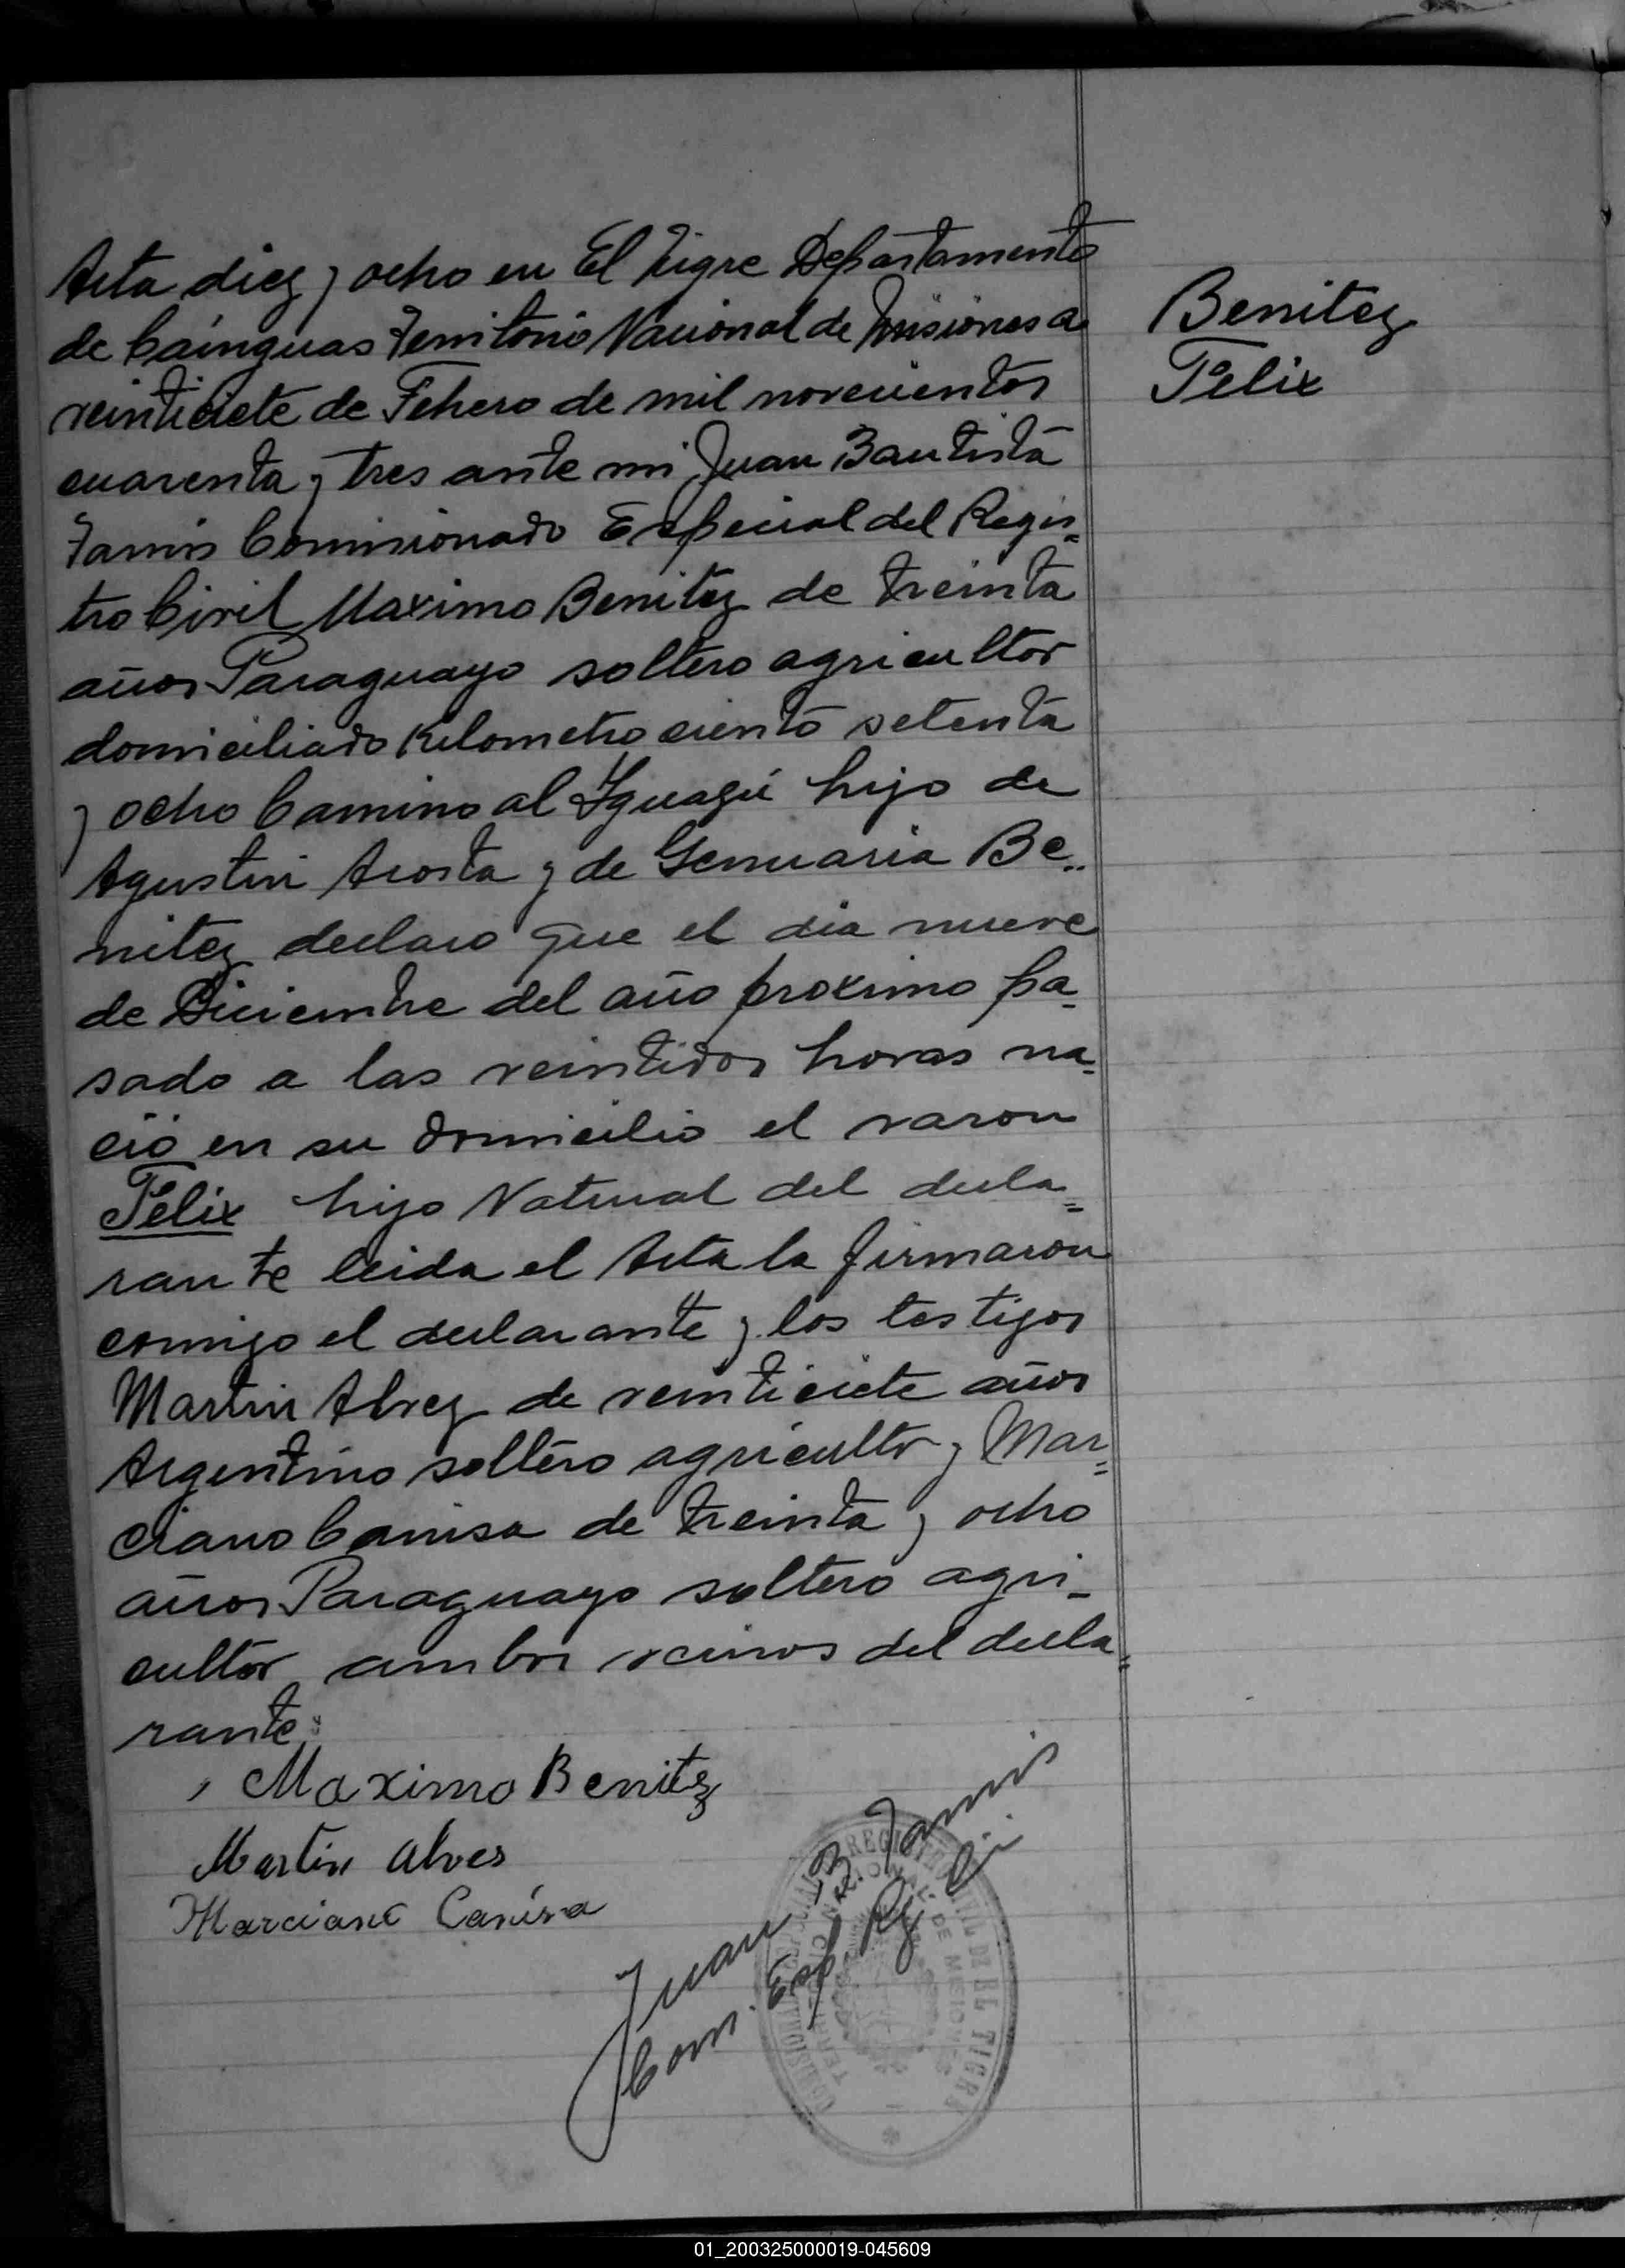 Acta diez y ocho en El Tigre Departamento
de Cainguas Territorio Nacional de Misiones a
veinticiete de Febrero de mil novecientos
cuarenta y tres ante mi Juan Bautista
Comisionado Especial del Regis=
tro Civil Maximo Benitez de treinta
años Paraguayo soltero agricultor
domiciliado Kilometro ciento setenta
y ocho Camino al Iguazú hijo de
Agustin Acosta y de Genuaria Be=
nitez declaro que el dia nueve
de Diciembre del año proximo pa=
sado a las veintidos horas na=
ció en su domicilio el varon
Felix hijo Natural del decla=
rante leida el Acta la firmaron
comigo el declarante y los testigos
Martin Alvez de veinticiete años
Argentino soltero agricultor y Mar=
ciano de treinta y ocho
años Paraguayo soltero agri=
cultor ambos vecinos del decla=
rante:
Maximo Benitez
Martin Alves
Marciano
Juan B.
Com. Esp. Rg. Civ
Benitez
Felix
REGISTRO CIVIL DE EL TIGRE
01_200325000019-045609